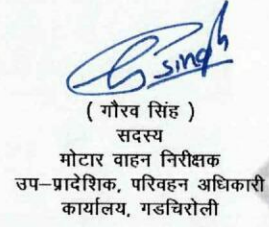 G Singh
( गौरव सिंह )
सदस्य
मोटार वाहन निरीक्षक
उप–प्रादेशिक, परिवहन अधिकारी
कार्यालय, गडचिरोली